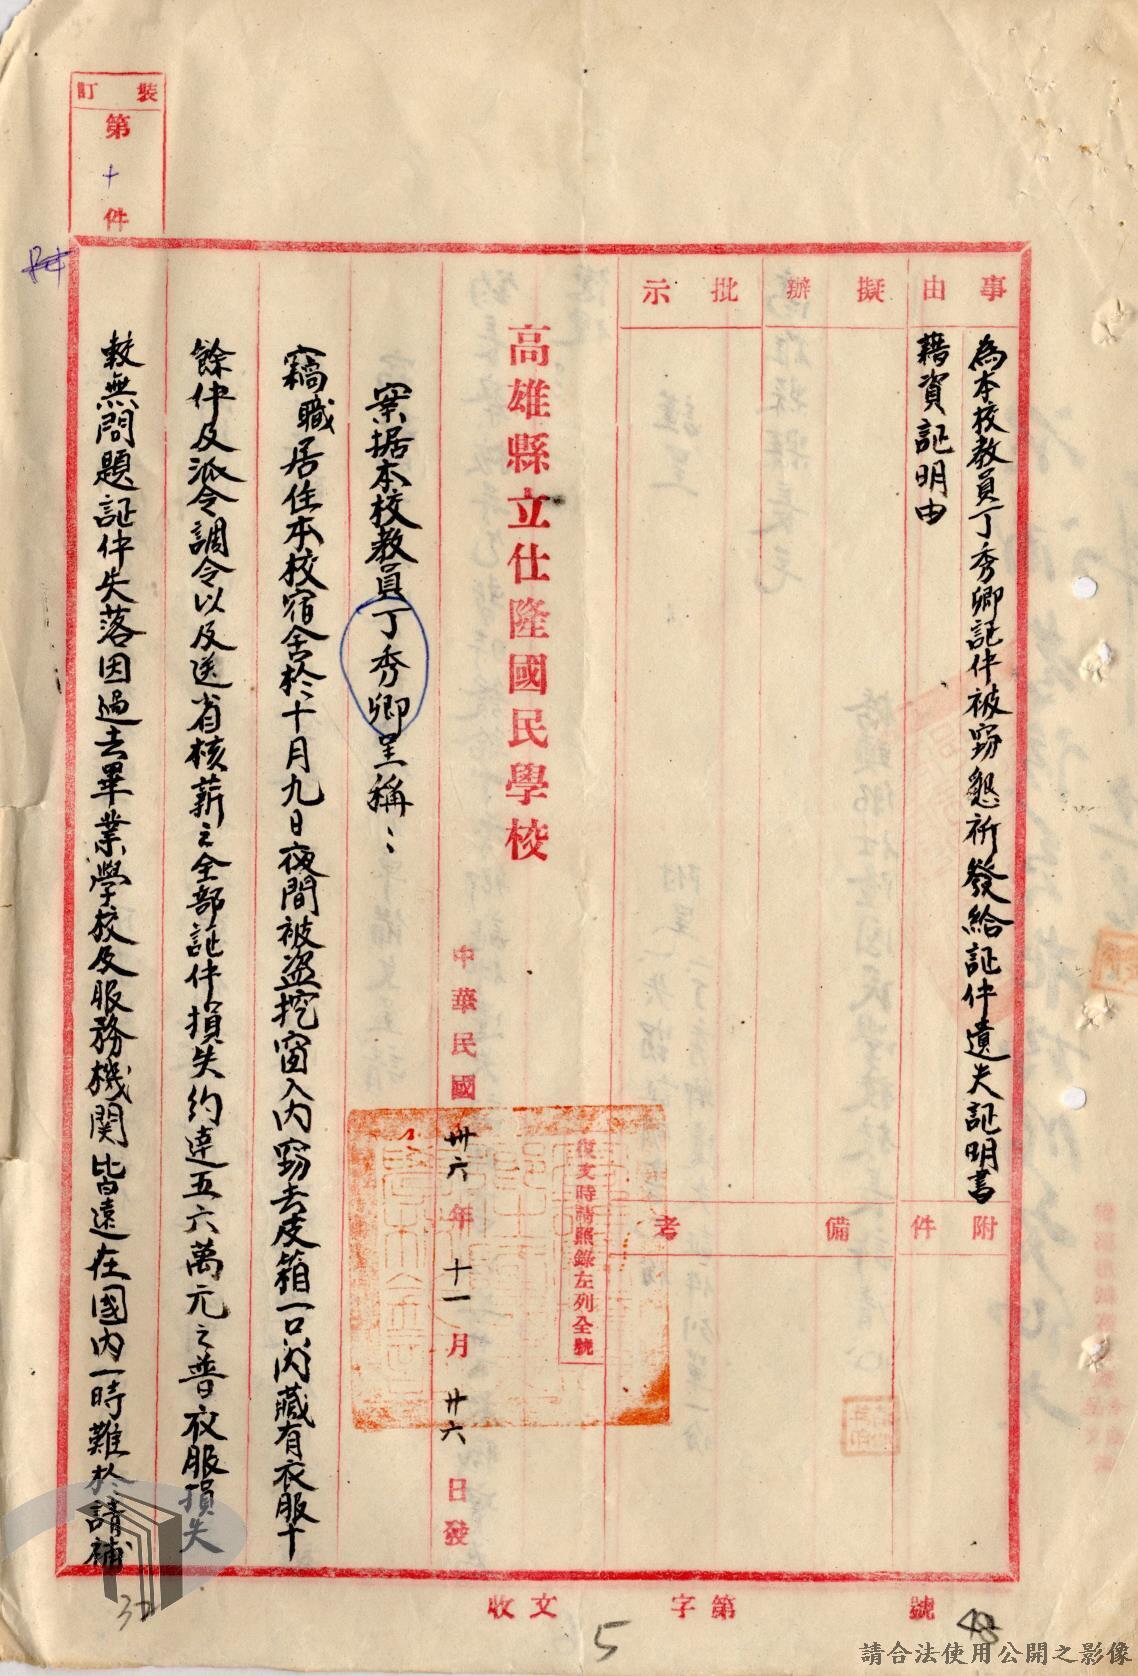 裝訂
第十件
事由
為本校教員丁秀卿証件被竊懇祈發給証件遺失証明書
藉資証明由
擬辦
批示
附件
備考
高雄縣立仕隆國民學校
復文時請照錄左列全號
中華民國卅六年十一月廿六日發
案据本校教員丁秀卿呈稱：
竊職居住本校宿舍於十月九日夜間被盜挖窗入內竊去皮箱一口內藏有衣服十
餘件及派令調令以及送省核薪之全部証件損失約達五六萬元之普衣服損失
較無問題証件失落因過去畢業學校及服務機関皆遠在國內一時難於請補
收文
字第
號
48
5
37
請合法使用公開之影像